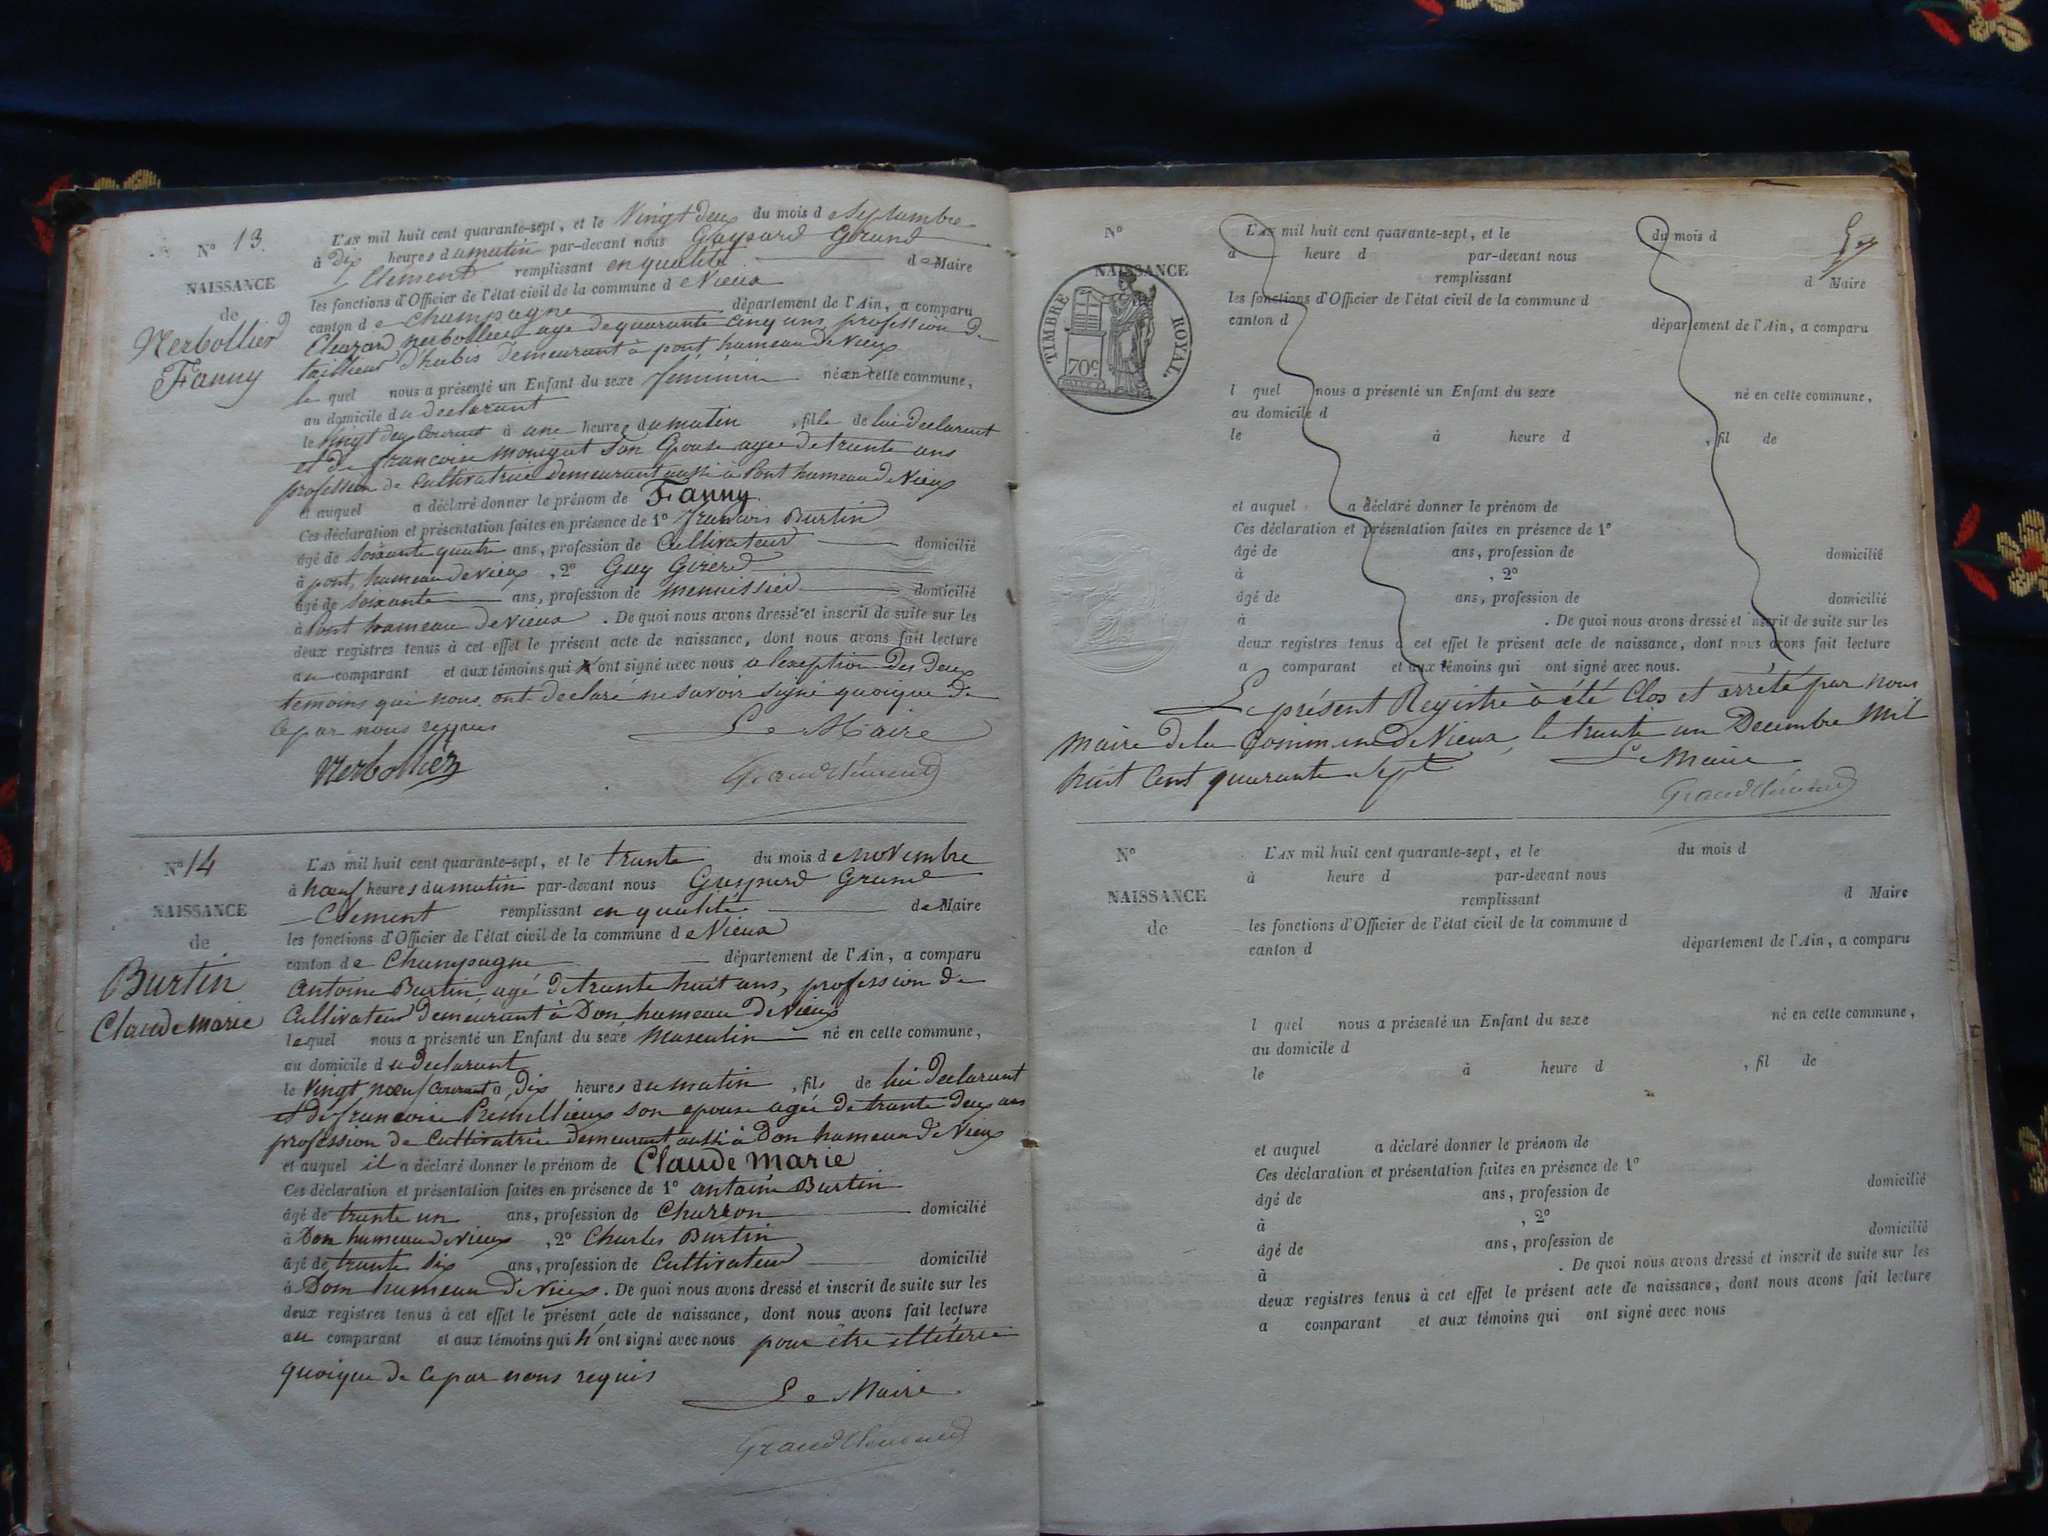 N° 13.
NAISSANCE
de
Nerbollier
Fanny
L'AN mil huit cent quarante-sept, et le Vingt deux du mois de Septembre
à Dix heures du matin par-devant nous Gaspard Grand
Clément remplissant en qualité de Maire
les fonctions d'Officier de l'état civil de la commune de Vieux
canton de Champagne département de l'Ain, a comparu
Eleazard Nerbollier age de quarante cinq ans profession de
tailleur d'habis demeurant à pont hameau de Vieux
le quel nous a présenté un Enfant du sexe féminin né en cette commune,
au domicile du declarant
le Vingt deux Courant à une heure du matin, fille de lui declarant
et de francoise Moniquat son Epouse agée de trente ans
profession de Cultivatrice demeurant aussi à Pont hameau de Vieux
et auquel a déclaré donner le prénom de Fanny
Ces déclaration et présentation faites en présence de 1° francois Burtin
âgé de soixante quatre ans, profession de Cultivateur domicilié
à pont, hameau de vieux, 2° Guy Girerd
âgé de soixante ans, profession de menuissier domicilié
à Pont hameau de Vieux. De quoi nous avons dressé et inscrit de suite sur les
deux registres tenus à cet effet le présent acte de naissance, dont nous avons fait lecture
au comparant et aux témoins qui ont signé avec nous a l'exception des deux
temoins qui nous ont declaré ne savoir signé quoique de
ce par nous requis
Le Maire
Nerbollier
Grand Clément
N° 14
NAISSANCE
de
Burtin
Claude Marie
L'AN mil huit cent quarante-sept, et le trente du mois de novembre
à nœuf heures du matin par-devant nous Gaspard Grand
Clément remplissant en qualité de Maire
les fonctions d'Officier de l'état civil de la commune de Vieux
canton de Champagne département de l'Ain, a comparu
Antoine Burtin, agé de trente huit ans, profession de
Cultivateur demeurant à Don, hameau de Vieux
lequel nous a présenté un Enfant du sexe Masculin né en cette commune,
au domicile du declarant
le Vingt nœuf courant à dix heures du matin, fils de lui declarant
et de francoise Premillieux son epouse agée de trente deux ans
profession de Cultivatrice demeurant aussi à Don hameau de Vieux
et auquel il a déclaré donner le prénom de Claude Marie
Ces déclaration et présentation faites en présence de 1° antoine Burtin
âgé de trente un ans, profession de Charron domicilié
à Don hameau de Vieux, 2° Charles Burtin
âgé de trente six ans, profession de Cultivateur domicilié
à Don hameau de Vieux. De quoi nous avons dressé et inscrit de suite sur les
deux registres tenus à cet effet le présent acte de naissance, dont nous avons fait lecture
au comparant et aux témoins qui n'ont signé avec nous pour être illétéré
quoique de ce par nous requis
Le Maire
Grand Clément
N°
NAISSANCE
TIMBRE ROYAL.
70c
L'AN mil huit cent quarante-sept, et le du mois d
à heure d par-devant nous
remplissant d Maire
les fonctions d'Officier de l'état civil de la commune d
canton d département de l'Ain, a comparu
l quel nous a présenté un Enfant du sexe né en cette commune,
au domicile d
le à heure d , fil de
et auquel a déclaré donner le prénom de
Ces déclaration et présentation faites en présence de 1°
âgé de ans, profession de domicilié
à , 2°
âgé de ans, profession de domicilié
à . De quoi nous avons dressé et inscrit de suite sur les
deux registres tenus à cet effet le présent acte de naissance, dont nous avons fait lecture
a comparant et aux témoins qui ont signé avec nous.
Le présent Registre à été Clos et arrété par nous
Maire de la Commune de Vieux, le trente un Decembre Mil
huit Cent quarante Sept
Le Maire
Grand Clément
N°
NAISSANCE
de
L'AN mil huit cent quarante-sept, et le du mois d
à heure d par-devant nous
remplissant d Maire
les fonctions d'Officier de l'état civil de la commune d
canton d département de l'Ain, a comparu
l quel nous a présenté un Enfant du sexe né en cette commune,
au domicile d
le à heure d , fil de
et auquel a déclaré donner le prénom de
Ces déclaration et présentation faites en présence de 1°
âgé de ans, profession de domicilié
à , 2°
âgé de ans, profession de domicilié
à . De quoi nous avons dressé et inscrit de suite sur les
deux registres tenus à cet effet le présent acte de naissance, dont nous avons fait lecture
a comparant et aux témoins qui ont signé avec nous